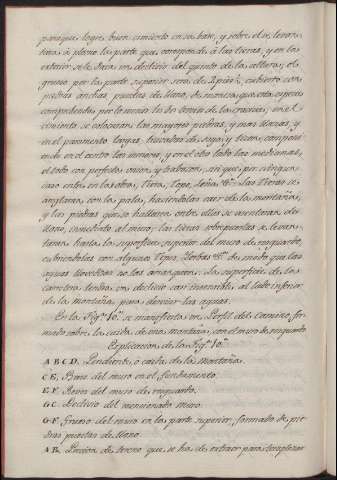 para que logre buen cimiento en su base, y sobre el se levan-
tara á plomo la parte que corresponde á las tierras, y en los
exterior se le dara un declivio del quinto de la altura; el
grueso por la parte superior sera de 3 pies, cubierto con
piedras anchas puestas de llano, de manera, que cada
comprehenda por lo menos los dos tercios de la crasicie; en el
cimiento se colocaran las mayores piedras, y mas llanas, y
en el paramento largas travadas de soga, y tizon, componi-
endo en el centro las menores, y en el otro lado las medianas,
el todo con perfecta union, y trabazon, sin que por ningun
caso entre en los obras, Tierra, Tepe, leña &c. las Tierras se
arreglaran con la pala, haciendolas caer de la montaña,
y las piedras que se hallaren entre ellas se asentaran de
llano, conducente al muro; las tierras sobrepuestas se levan-
taran hasta la superficie superior del muro de resguardo,
cubriendolas con algunos Tepes, Yerbas &c. de modo que las
aguas llovedizas no las arrastren; la superficie de la
carretera tendra un declivio casi insensible, al lado inferior
de la montaña, para desviar las aguas.
En la Fig.ª 10.ª se manifiesta un Perfil del Camino, for-
mado sobre la caida de una montaña, con el muro de resguardo
Explicacion de la Fig.ª 10.ª
A B C D. Pendiente, ó caida de la Montaña.
C E, Base del muro en el fundamento.
E F. Reves del muro de resguardo.
G C. Declivio del mencionado muro.
G F. Grueso del muro en la parte superior, formado de pie-
dras puestas de llano.
A B. Porcion de terreno que se ha de extraer para terraplenar